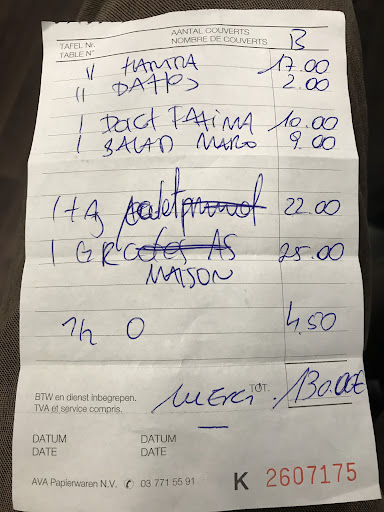 AANTAL COUVERTS B
TAFEL Nr. NOMBRE DE COUVERTS
TABLE N°
" HAMRA 17.00
" DATTES 2.00
1 DOIGT FATIMA 10.00
1 SALAD MARO 9.00
1 TAJ 22.00
1 GR 25.00
MAISON
1/2 O 4.50
MERCI TOT. 130.00€
BTW en dienst inbegrepen.
TVA et service compris.
DATUM DATUM
DATE DATE
AVA Papierwaren N.V. ✆ 03 771 55 91 K 2607175